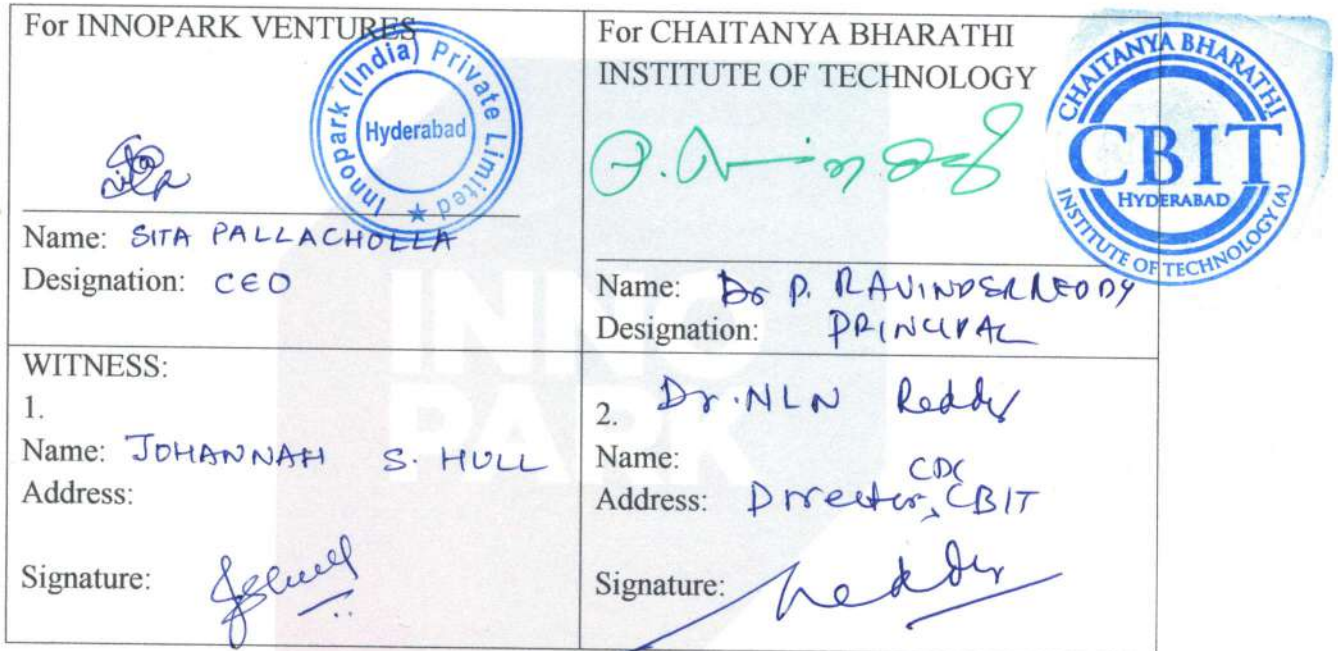 For INNOPARK VENTURES
Innopark (India) Private Limited
Hyderabad
Name: SITA PALLACHOLLA
Designation: CEO
For CHAITANYA BHARATHI
INSTITUTE OF TECHNOLOGY
CHAITANYA BHARATHI
CBIT
HYDERABAD
INSTITUTE OF TECHNOLOGY (A)
Name: Dr P. RAVINDER REDDY
Designation: PRINCIPAL
WITNESS:
1.
Name: JOHANNAH S. HULL
Address:
Signature:
2. Dr. NLN Reddy
Name:
CDC
Address: Director, CBIT
Signature: Reddy
INNO
PARK